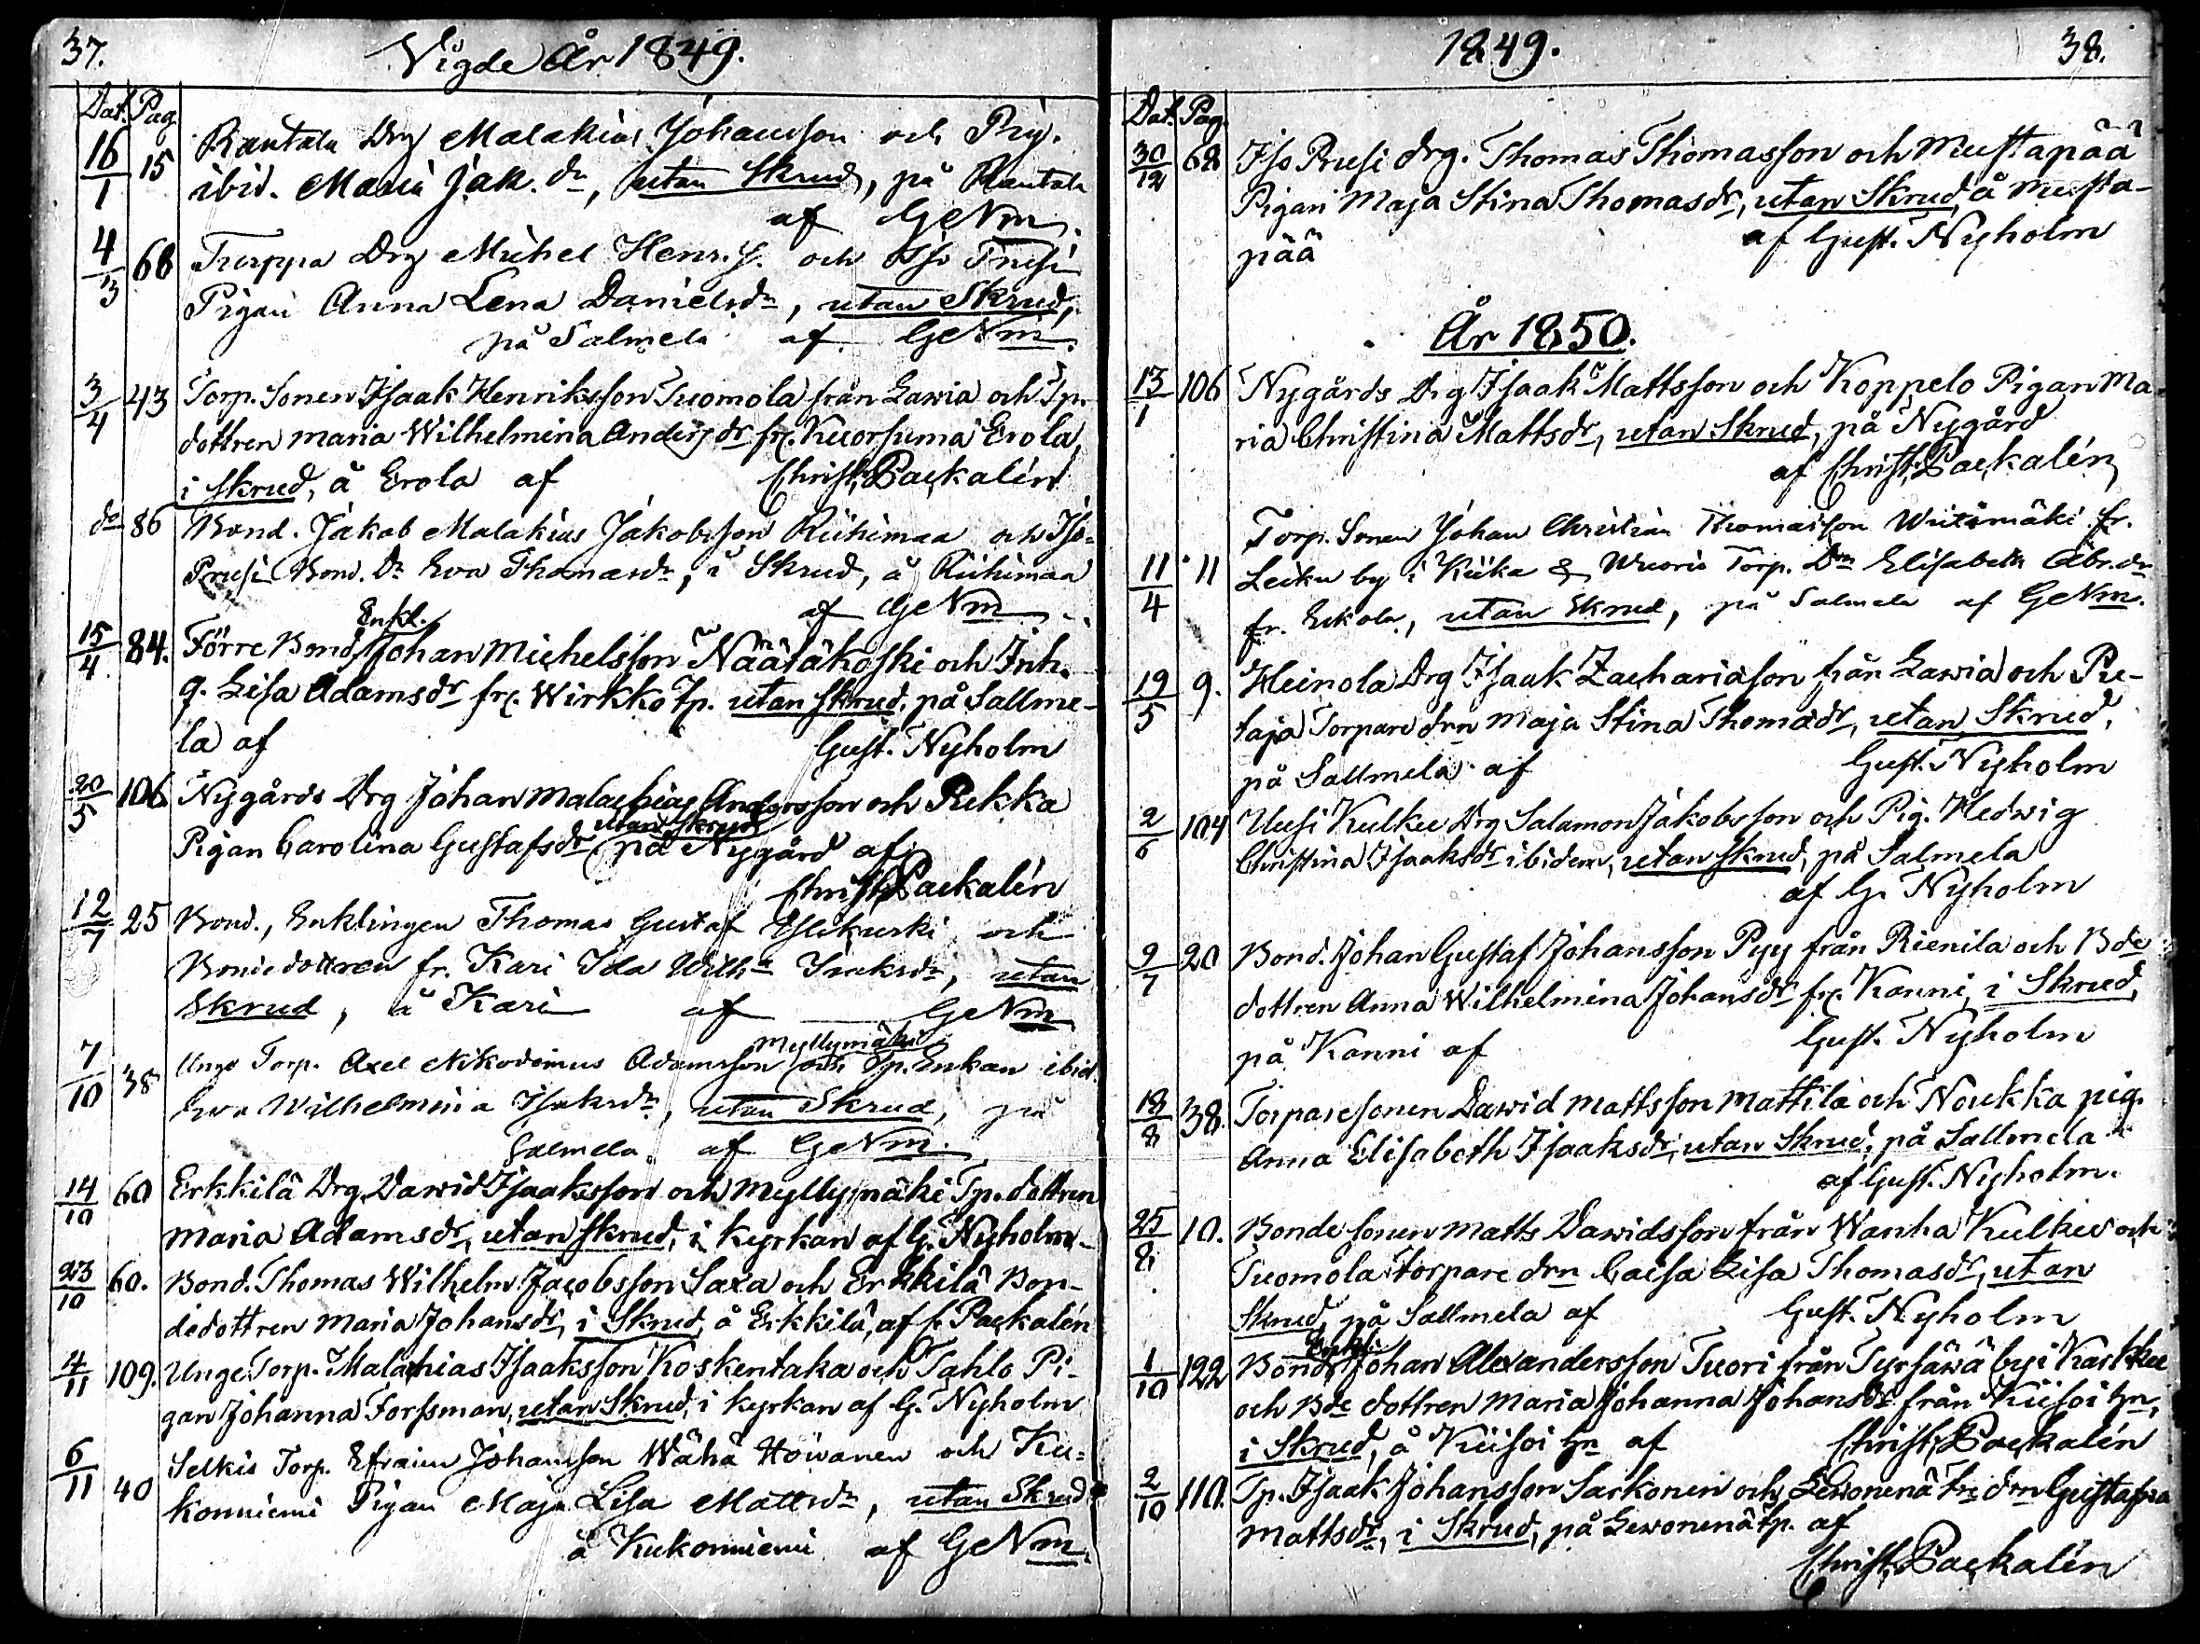 37.
Vigde År 1849.
Dat. Pag
16/1 15 Rantala Drg Malakias Johansson och Pig.
ibid. Maria Jak. dr, utan Skrud, på Rantala
af GeNm.
4/3 68 Turppa Drg Michel Henr. s. och Iso
Pigan Anna Lena Danielsdr, utan Skrud,
på Salmela af GeNm.
3/4 43 Torp. Sonen Isaak Henriksson Tuomola från Lawia och Tp.
dottren Maria Wilhelmina Andersdr fr. Kuorsuma Erola,
i Skrud, å Erola af Christ. Packalén
do 86 Bond. Jakob Malakias Jakobsson Riihimaa och Iso-
Prusi Bond. Dr Eva Thomasdr, i Skrud, å Riihimaa
af GeNm
15/4 84. Förre Bond. Enkl. Johan Michelsson Näätäkoski och Inh.
q. Lisa Adamsdr fr. Wirkko Tp. utan Skrud, på Sallme-
la af Gust. Nyholm
20/5 106 Nygårds Drg Johan Malachias Andersson och Pukka
Pigan Carolina Gustafsdr utan Skrud på Nygård af
Christ. Packalén
12/7 25 Bond., Enklingen Thomas Gustaf och
Bondedottren fr. Kari Ida Wilh:a Isaksdr, utan
Skrud, å Kari af GeNm
7/10 38 Unge Torp. Axel Nikodemus Adamsson Myllymäki och Tp. Enkan ibid.
Eva Wilhelmina Isaksdr, utan Skrud, på
Salmela af GeNm.
14/10 60 Erkkilä Drg Dawid Isaaksson och Myllymäki Tp. dottren
Maria Adamsdr, utan Skrud, i kyrkan af G. Nyholm
23/10 60. Bond. Thomas Wilhelm Jacobsson Saxa och Erkkilä Bon-
dedottren Maria Johansdr, i Skrud, å Erkkilä, af C. Packalén
4/11 109. Unge Torp. Malachias Isaaksson Koskentaka och Tahlo Pi-
gan Johanna Forssman, utan Skrud, i kyrkan af G. Nyholm
6/11 40 Selkis Torp. Efraim Johansson Wähä Höwanen och Ku-
konniemi Pigan Maja Lisa Mattsdr, utan Skrud
å Kukonniemi af GeNm.
1849. 38.
Dat. Pag.
30/12 68 Iso Prusi drg. Thomas Thomasson och Mustapää
Pigan Maja Stina Thomasdr, utan Skrud, å Musta-
pää af Gust. Nyholm
År 1850.
13/1 106 Nygårds Drg Isaak Mattsson och Koppelo Pigan Ma
ria Christina Mattsdr, utan Skrud, på Nygård
af Christ. Packalén
11/4 11 Torp. Sonen Johan Christian Thomasson Wiitamäki fr.
Leiku by i Kiika & Wuorio Torp. Drn Elisabeth Abr. dr
fr. Eskola, utan Skrud, på Salmela af GeNm.
19/5 9. Heinola Drg Isaak Zachariasson från Lawia och Pe-
taja Torpare drn Maja Stina Thomasdr, utan Skrud,
på Sallmela af Gust. Nyholm
2/6 104 Uusi Kulkee Drg Salamon Jakobsson och Pig. Hedwig
Christina Isaaksdr ibidem, utan Skrud, på Salmela
af G. Nyholm
9/7 20 Bond. Johan Gustaf Johansson Pyy från Rienila och Bde
dottren Anna Wilhelmina Johansdr fr. Kanni, i Skrud,
på Kanni af Gust. Nyholm
18/8 38. Torparesonen Dawid Mattsson Mattila och Noukka pig.
Anna Elisabeth Isaaksdr, utan Skrud, på Sallmela
af Gust. Nyholm.
25/8 10. Bonde sonen Matts Dawidsson från Wanha Kulkee och
Tuomola torpare drn Caisa Lisa Thomasdr, utan
Skrud, på Sallmela af Gust. Nyholm
1/10 122 Bond. Enkl. Johan Alexandersson Tuori från Tyrsäwä by i Karkku
och Bde dottren Maria Johanna Johansdr från Kiisoi hn,
i Skrud, å Kiisoi hn af Christ. Packalén
2/10 110. Tp. Isaak Johansson Sarkonen och Lewonenä Tp. drn Gustafva
Mattsdr, i Skrud, på Lewonenä tp. af
Christ. Packalén